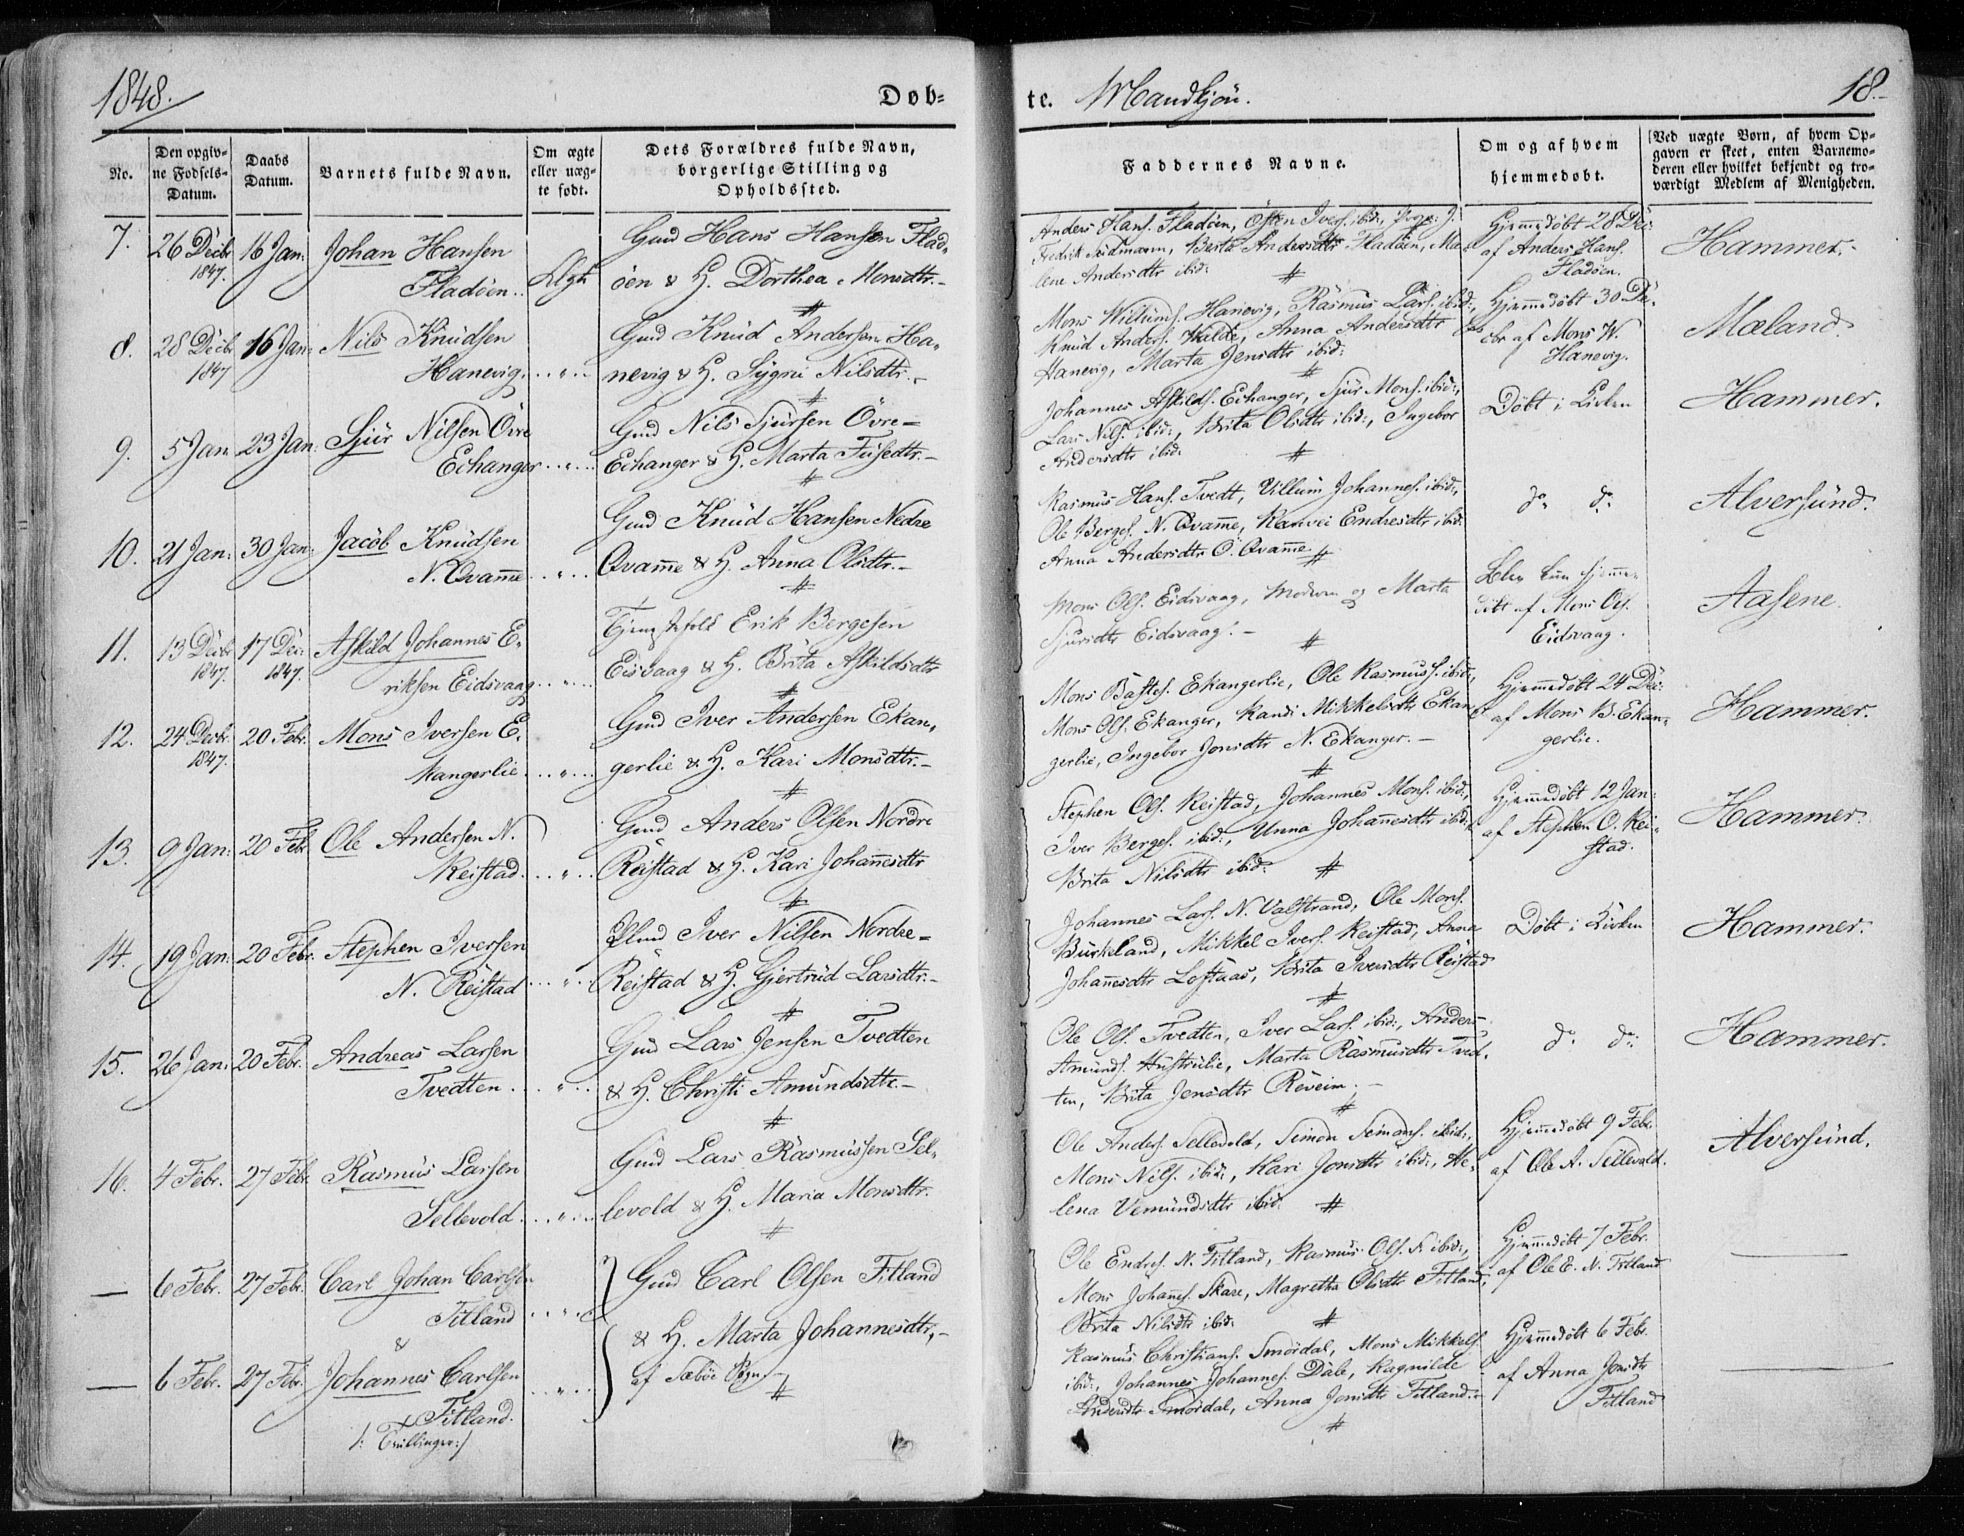 1848.
Døb-
te. Mandkjøn.
18.
No.
Den opgiv-
ne Fødsels-
Datum.
Daabs
Datum.
Barnets fulde Navn.
Om ægte
eller uæg-
te født.
Dets Forældres fulde Navn,
borgerlige Stilling og
Opholdssted.
Faddernes Navne.
Om og af hvem
hjemmedøbt.
Ved uægte Børn, af hvem Op-
gaven er skeet, enten Barnemo-
deren eller hvilket bekjendt og tro-
værdigt Medlem af Menigheden.
7. 26 Decbr 16 Jan: Johan Hansen
1847.
Fladöen.
Ægte
Gmd Hans Hansen Flad-
öen & H. Dorthea Monsdtr.-
Anders Hans. Fladöen, Östen Ivers. ibid:,
Fredrik Seidmann, Berta Andersdtr Fladöen, Ma-
lene Andersdtr ibid: #
Hjemmedöbt 28 Dec:
af Anders Hans.
Fladöen.
Hammer.
8. 28 Decbr 16 Jan: Nils Knudsen
1847
Hanevig. . . . " . .
Gmd Knud Andersen Ha-
nevig & H. Sygni Nilsdtr.-
Mons Willums. Hanevig, Rasmus Lars. ibid:,
Knud Anders. Valde, Anna Andersdtr
Hanevig, Marta Jensdtr ibid:
Hjemmedöbt 30 De-
cbr af Mons W.
Hanevig.
Mæland.
9. 5 Jan 23 Jan: Sjur Nilsen Övre
Echanger . . " . . .
Gmd Nils Sjursen Övre-
Echanger & H. Marta Tufedtr.-
Johannes Askilds. Echanger, Sjur Mons. ibid:,
Lars Nils. ibid:, Brita Olsdtr ibid:, Ingebor
Andersdtr ibid: #
Döbt i Kirken
Hammer.
10. 21 Jan: 30 Jan: Jacob Knudsen
N. Qvamme . . " . .
Gmd Knud Hansen Nedre
Qvamme & H. Anna Olsdtr.-
Rasmus Hans. Tvedt, Villum Johannes. ibid:,
Ole Berges. N. Qvamme, Ranvei Endresdtr ibid:
Anna Andersdtr O. Qvamme #
do do
Alversund.
11. 13 Decbr 17 Dec: Askild Johannes E-
1847. 1847.
riksen Eidsvaag . . " . .
Erik Bergesen
Eisvaag & H. Brita Askildsdtr
Mons Ols. Eidsvaag, Moderen og Marta
Sjursdtr Eidsvaag. - #
Blev kun hjemme-
döbt af Mons Ols.
Eidsvaag.
Aasene.
12. 24 Decbr. 20 Febr. Mons Iversen E-
1847.
kangerlie . . . " . . .
Gmd Iver Andersen Ekan-
gerlie & H. Kari Monsdtr.-
Mons Bastes. Ekangerlie, Ole Rasmuss. ibid:,
Mons Ols. Ekanger, Randi Mikkelsdtr Ekan-
gerlie, Ingebor Jonsdtr N. Ekanger. -
Hjemmedöbt 24 Dec:
af Mons B. Ekan-
gerlie.
Hammer.
13. 9 Jan: 20 Febr Ole Andersen N.
Reistad. . . . " . .
Gmd Anders Olsen Nordre
Reistad & H. Kari Johannesdtr
Stephen Ols. Reistad, Johannes Mons. ibid:,
Iver Berges. ibid:, Unna Johannesdtr ibid:
Brita Nilsdtr ibid: #
Hjemmedöbt 12 Jan:
af Stephen O. Rei-
stad.
Hammer.
14. 19 Jan: 20 Febr. Stephen Iversen
N. Reistad . . . " . .
Iver Nilsen Nordre-
Reistad & H. Gjertrud Larsdtr.-
Johannes Lars. N. Valstrand, Ole Mons.
Burkeland, Mikkel Ivers. Reistad, Anna
Johannesdtr Loftaas, Brita Iversdtr Reistad
Döbt i Kirken
Hammer.
15. 26 Jan: 20 Febr. Andreas Larsen
Tvedten. . . . " . .
Gmd Lars Jensen Tvedten
& H. Christi Amundsdtr.-
Ole Ols. Tvedten, Iver Lars. ibid:, Anders
Amunds. Hustrulie, Marta Rasmusdtr Tved-
ten, Brita Jensdtr Röveim. -
do do
Hammer.
16. 4 Febr. 27 Febr. Rasmus Larsen
Sellevold . . . " . . .
Gmd Lars Rasmussen Sel-
levold & H. Maria Monsdtr.
Ole Anders. Sellevold, Simon Seimans. ibid:,
Mons Nils. ibid:, Kari Jonsdtr ibid:, He-
lena Vemundsdtr ibid: #
Hjemmedöbt 9 Febr.
af Ole A. Sellevold.
Alversund.
— 6 Febr. 27 Febr. Carl Johan Carlsen
Titland . . . " . .
&
Gmd Carl Olsen Titland
& H. Marta Johannesdtr.-
af Sæböe Sogn
Ole Endres. N. Titland, Rasmus Ols. S. ibid:,
Mons Johannes. Skare, Magretha Olsdtr Titland,
Brita Nilsdtr ibid: #
Hjemmedöbt 7 Febr.
af Ole E. N. Titland
— 6 Febr. 27 Febr. Johannes Carlsen
Titland.
/: Tvillinger :/
Rasmus Christians. Smördal, Mons Mikkels.
ibid:, Johannes Johannes. Dale, Ragnilde
Andersdtr Smördal, Anna Jonsdtr Titland.-
Hjemmedöbt 6 Febr.
af Anna Jonsdtr
Titland